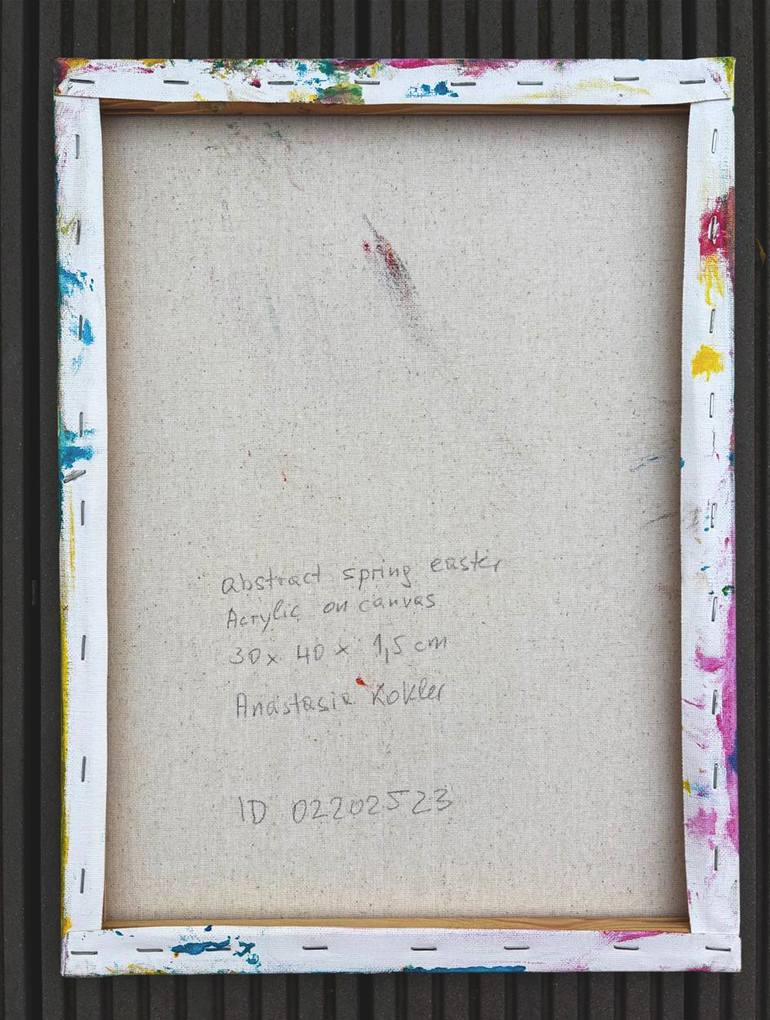 abstract spring easter
Acrylic on canvas
30x 40 x 1,5 cm
Anastasia Kokler
ID 02202523